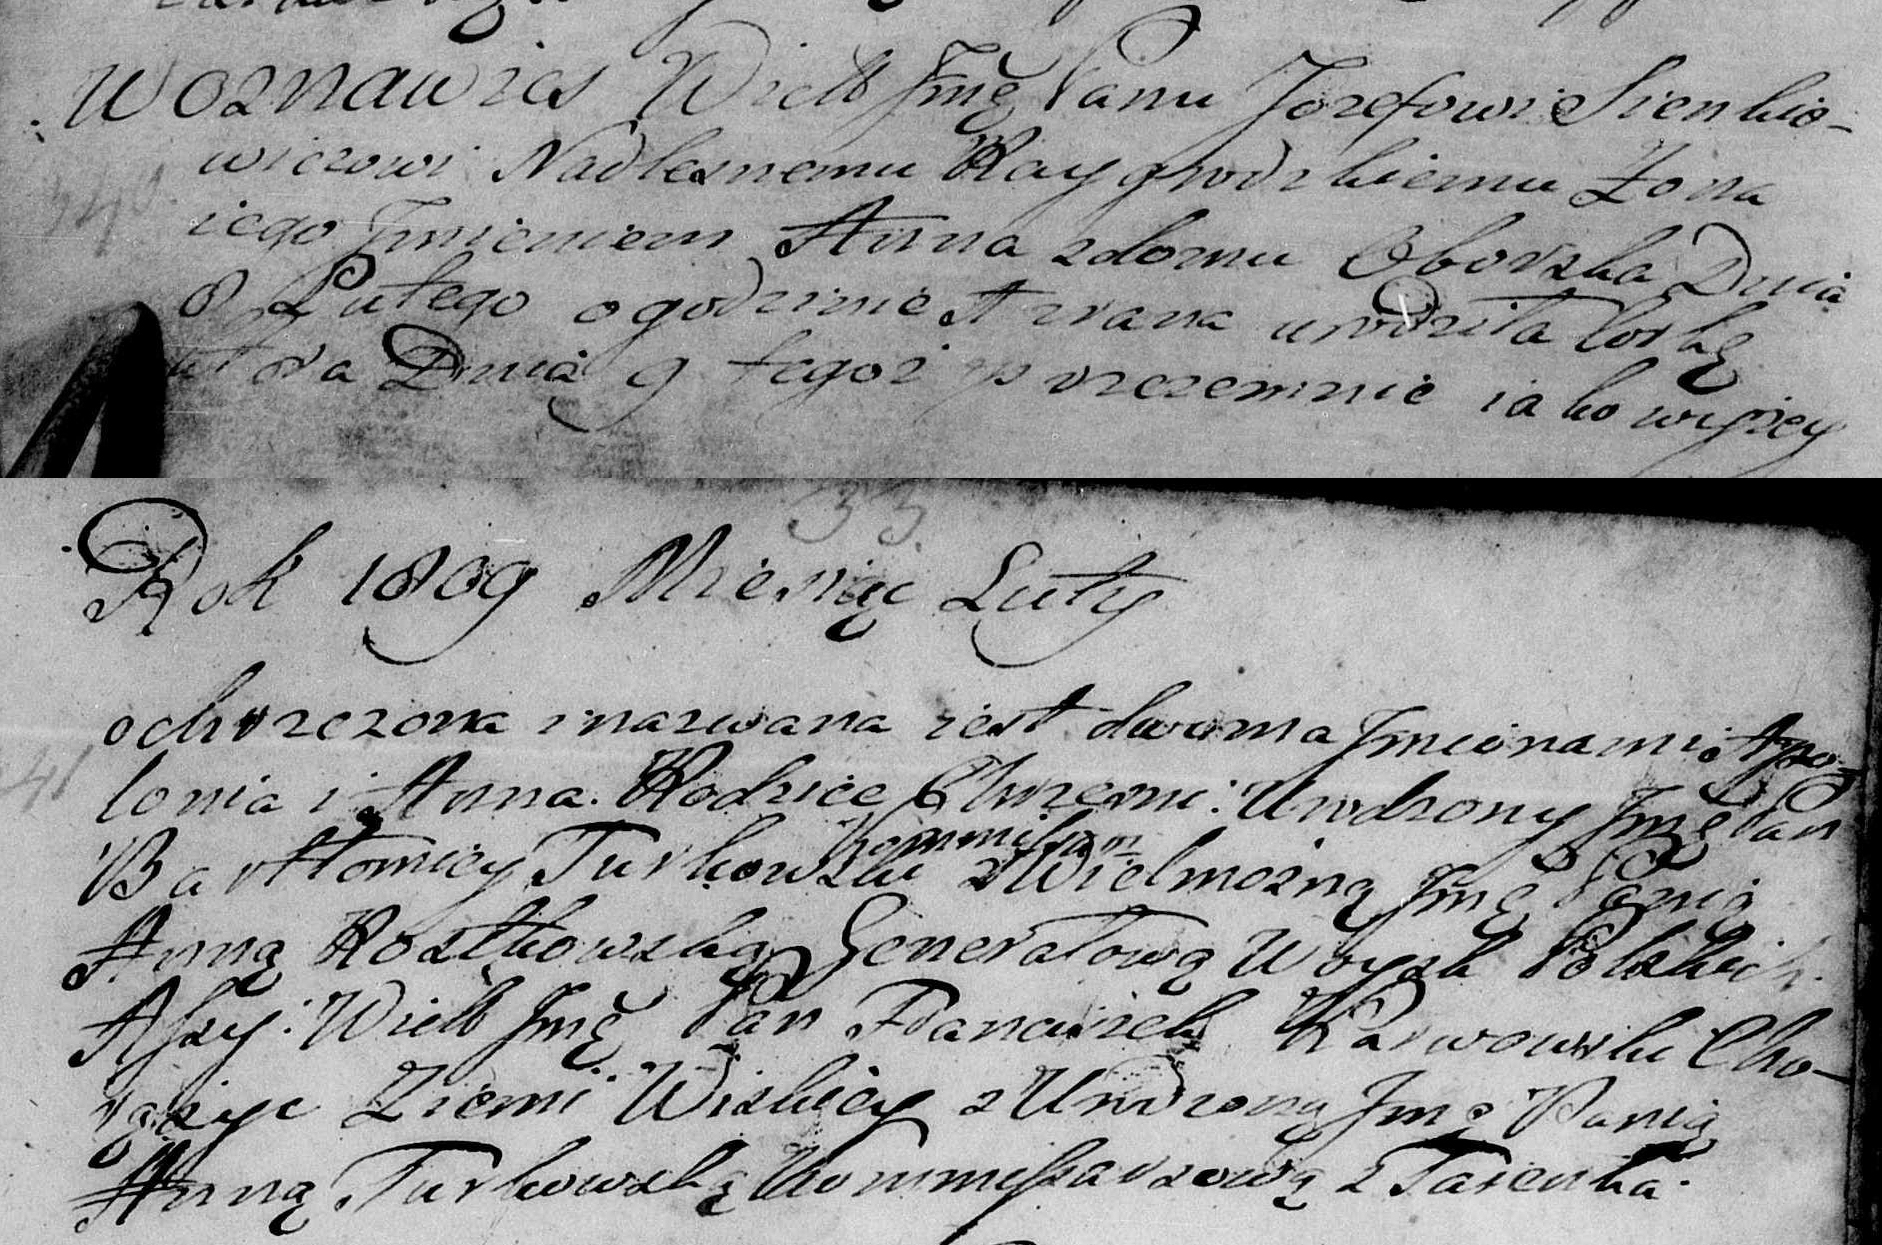 Woznawies Wielb Jmę Panu Jozefowi Sienkie-
wiczowi Nadlesnemu Raygrodzkiemu Zona
340.
iego Jmieniem Anna zdomu Oborska Dnia
8 Lutego o godzinie 4 zrana urodziła Corkę
ktora Dnia 9 tegoż przezemnie iako wyżey
33
Rok 1809 Miesiąc Luty
ochrzczona i nazwana iest dwoma Jmionami Apo-
41
lonia i Anna. Rodzice Chrzesni: Urodzony Jmę Pan
Bartłomiey Turkowski z Wielmożną Jmę Panią
Anną Rostkowską Generałową Woysk Polskich.
Assy: Wielb Jmę Pan Franciszek Karwowski Cho-
rążyc Ziemi Wizkiey z Urodzoną Jmę Panią
Anną Turkowską Kommissarzową z Taienka.